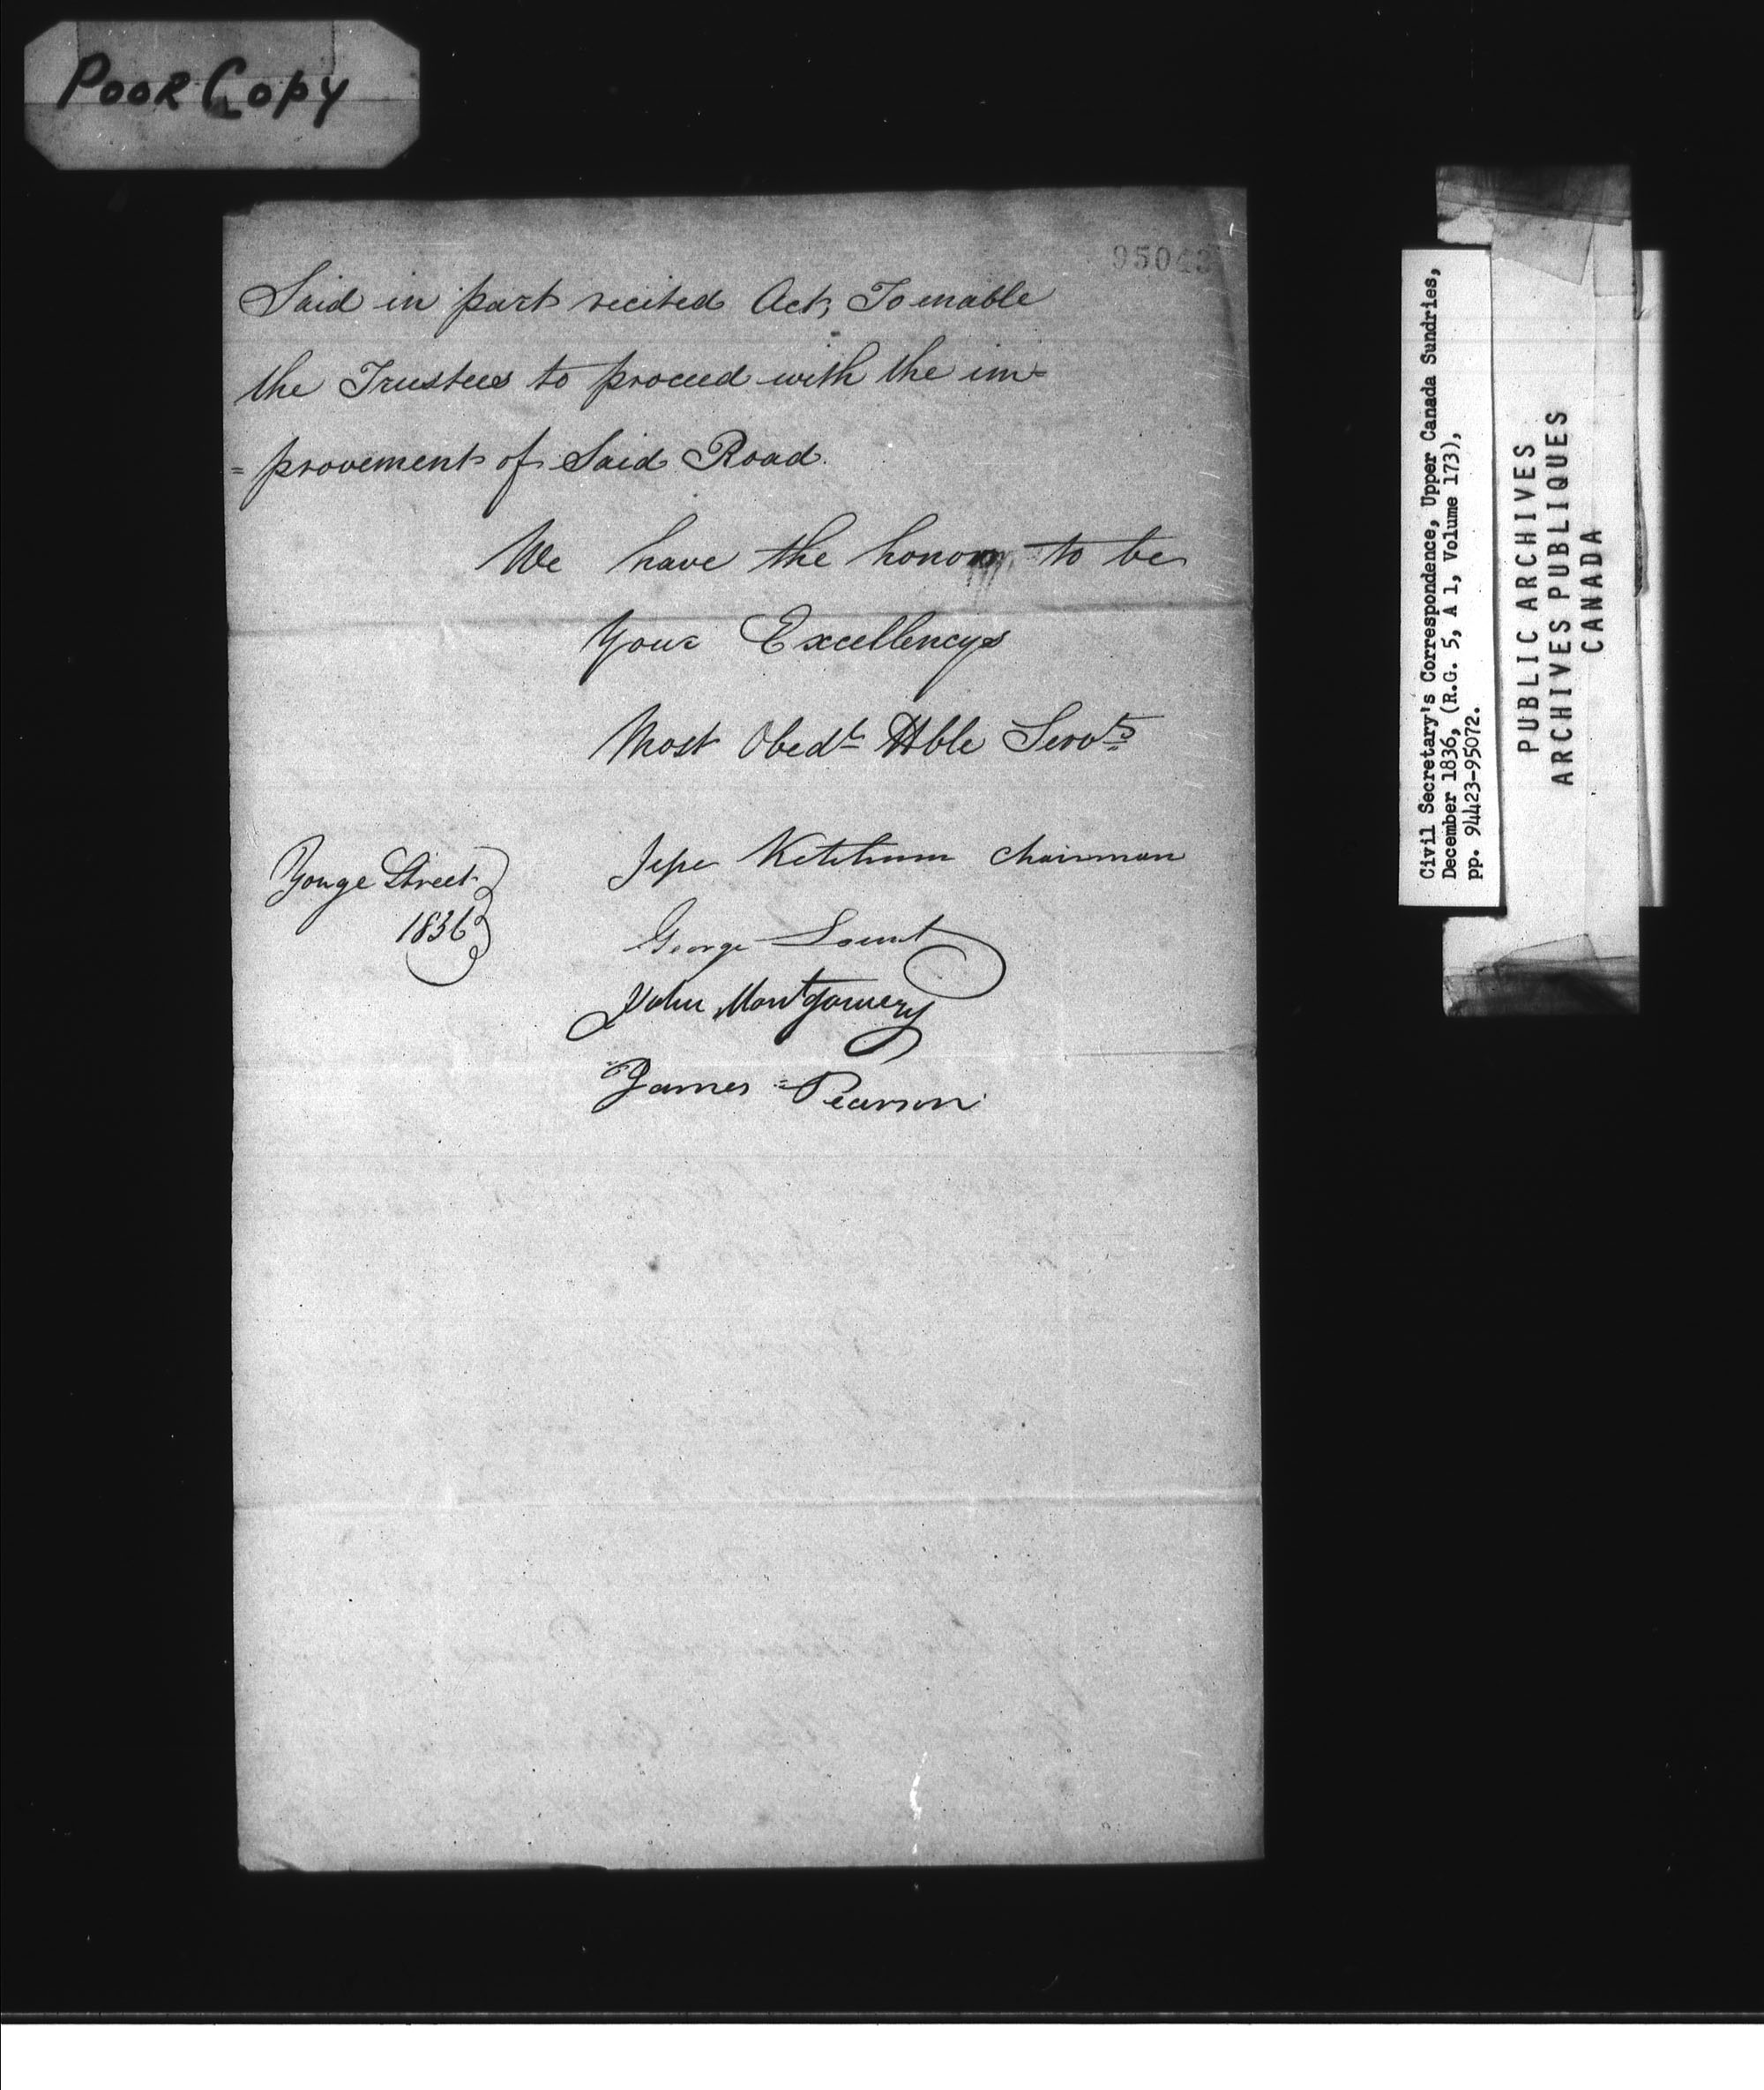 Poor Copy
95043
Said in part recited Act, To enable
the Trustees to proceed with the im=
=provement of Said Road.
We have the honor to be
Your Excellencys
Most Obedt Hble Servts
Yonge Street
1836
Jesse Ketchum chairman
George Lount
John Montgomery
James Pearson
Civil Secretary's Correspondence, Upper Canada Sundries,
December 1836, (R.G. 5, A 1, Volume 173),
pp. 94423-95072.
PUBLIC ARCHIVES
ARCHIVES PUBLIQUES
CANADA